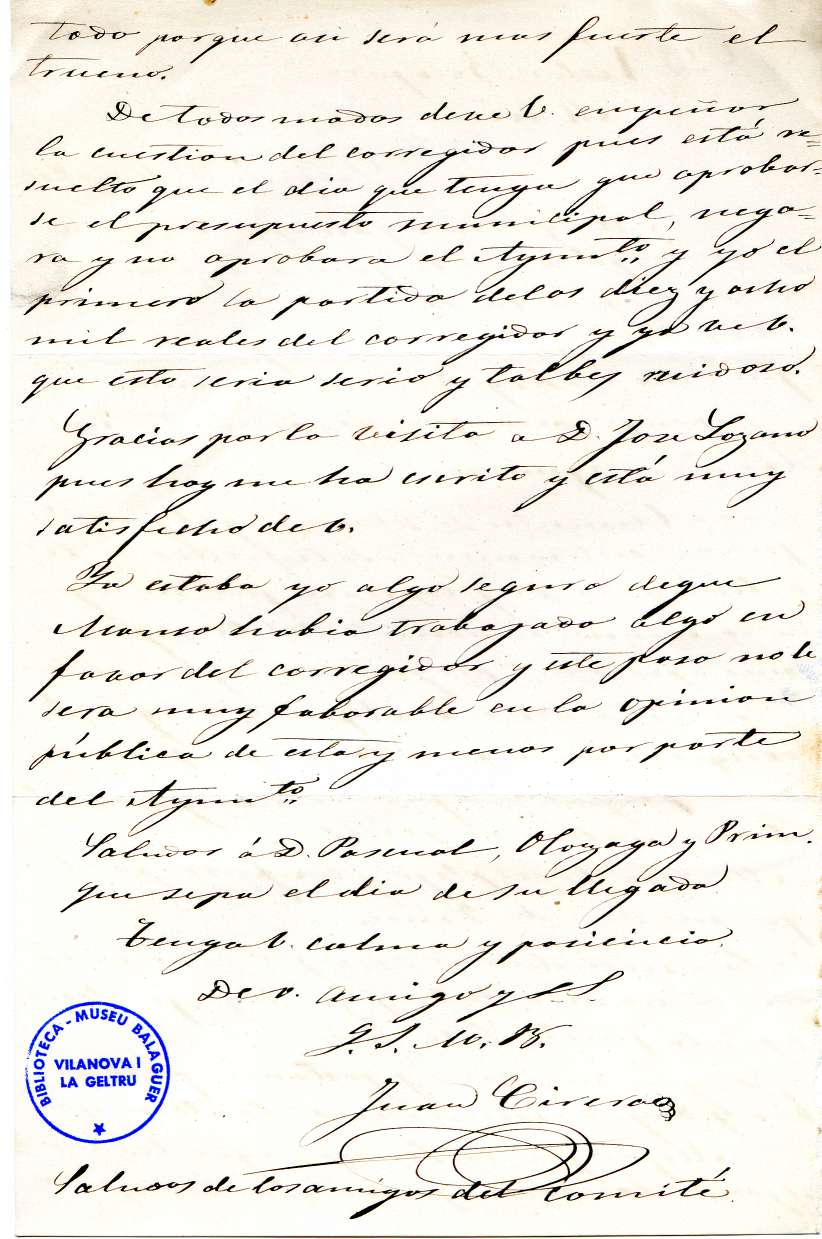 todo porque asi será mas fuerte el
trueno.
De todos modos deve V. empeñar
la cuestion del corregidor pues está re-
suelto que el dia que tenga que aprobar-
se el presupuesto municipal, nega-
ra y no aprobara el Ayunto. y yo el
primero la partida delos diez y ocho
mil reales del corregidor y ya ve V.
que esto seria serio y talbes ruidoso.
Gracias por la visita a D. Jose Lozano
pues hoy me ha escrito y está muy
satisfecho de V.
Ya estaba yo algo seguro deque
Manso habia trabajado algo en
favor del corregidor y este paso no le
sera muy faborable en la opinion
pública de esta y menos por parte
del Ayunto.
Saludos á D. Pascual, Olozaga y Prim.
que sepa el dia de su llegada
Tenga V. calma y pasiencia.
De v. amigo y S.S.
Q. S. M. B.
Juan Cirera
Saludos de los amigos del comité.
BIBLIOTECA - MUSEU BALAGUER
VILANOVA I
LA GELTRU